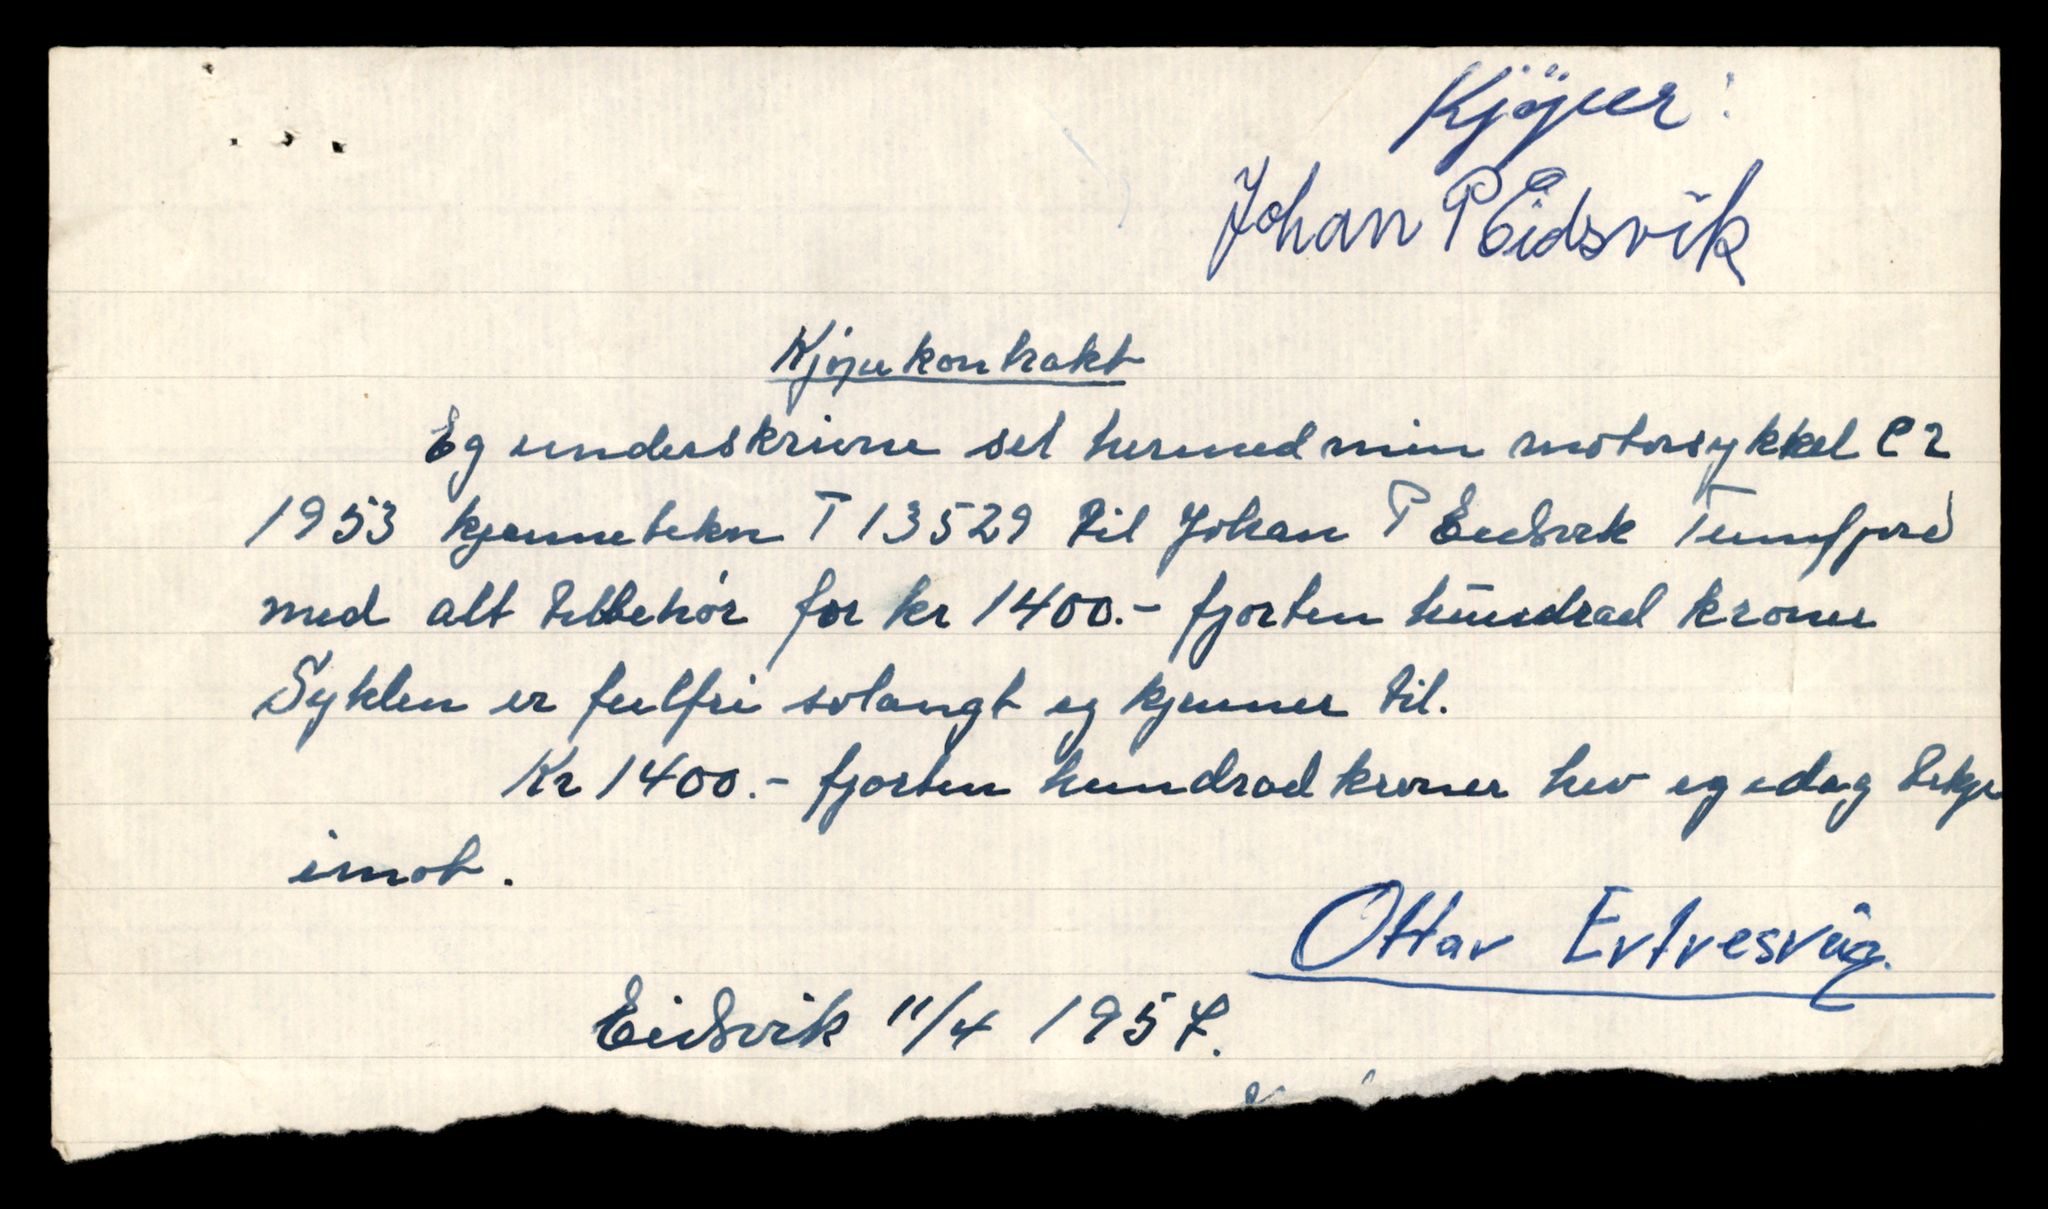 Kjöper:
Johan P Eidsvik
Kjøpekontrakt
Eg underskrivne sel hermed min motorsykkel
1953 kjennetekn T 13529 til Johan P Eidsvik Tennfjord
med alt tilbehør for kr 1400.- fjorten hundrad kroner
Syklen er feilfri solangt eg kjenner til.
Kr 1400.- fjorten hundrad kroner hev eg idag tekje
imot.
Ottar
Eidsvik 11/4 1957.